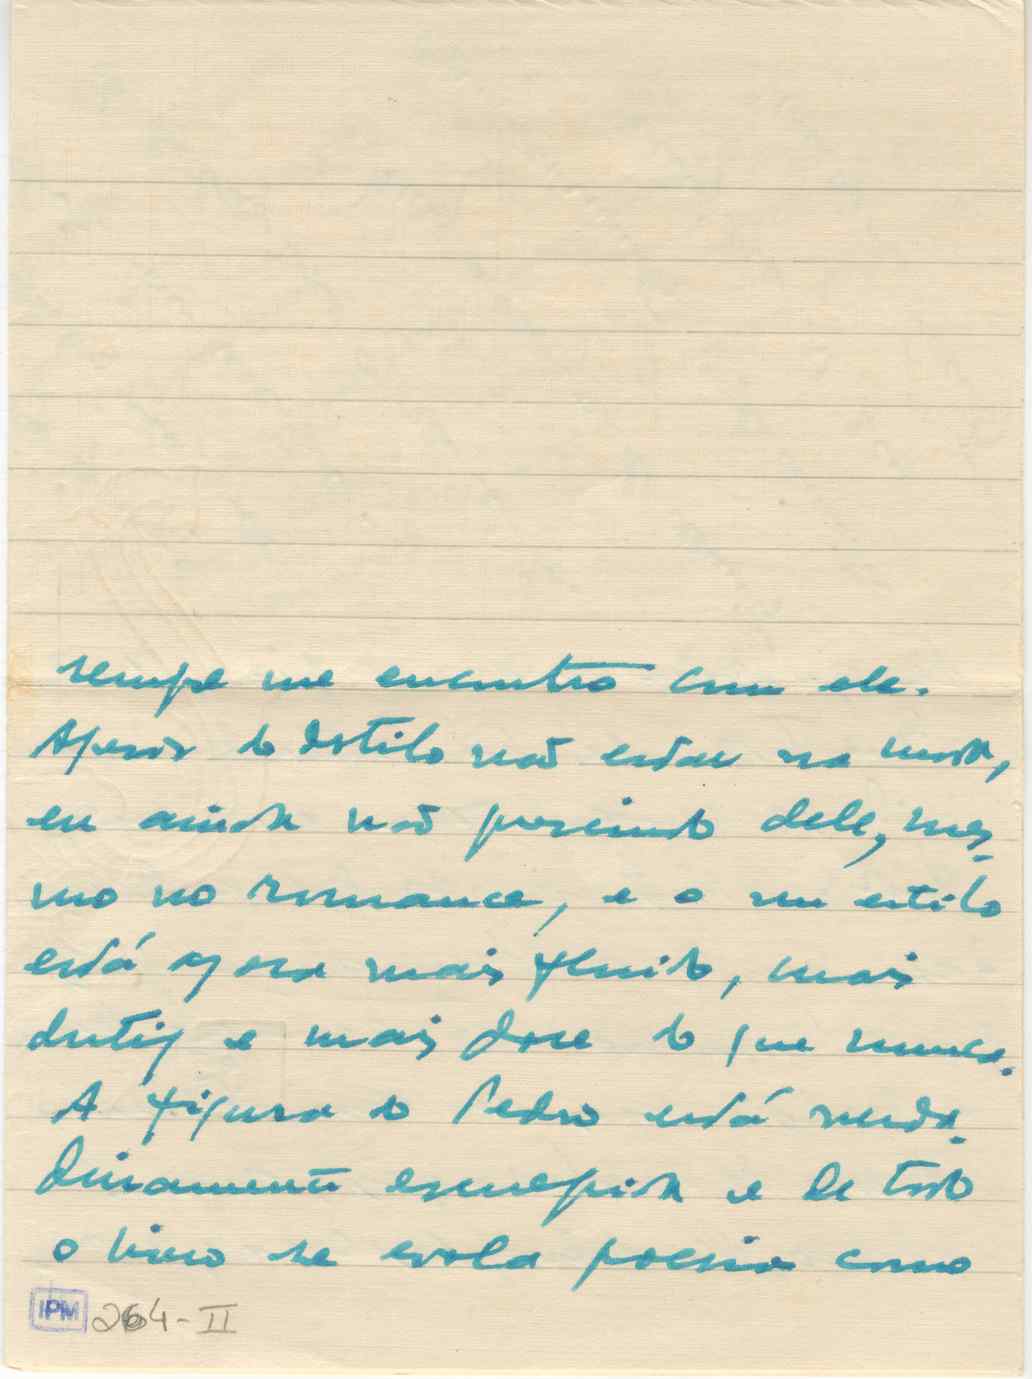 sempre me encontro com ele.
Apesar do estilo não estar na moda,
eu ainda não prescindo dele, mes-
mo no romance, e o seu estilo
está agora mais fluido, mais
ductil e mais doce do que nunca.
A figura do Pedro está verda-
deiramente esculpida e de todo
o livro se evola poesia como
IPM 264-II